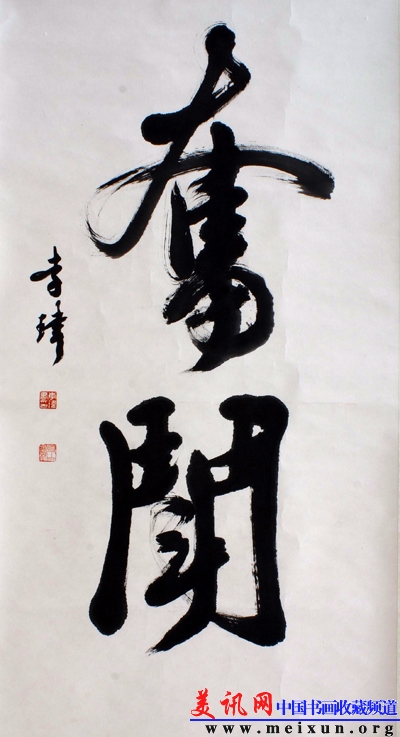 奮鬥
李瑋
美讯网 中国书画收藏频道
www.meixun.org